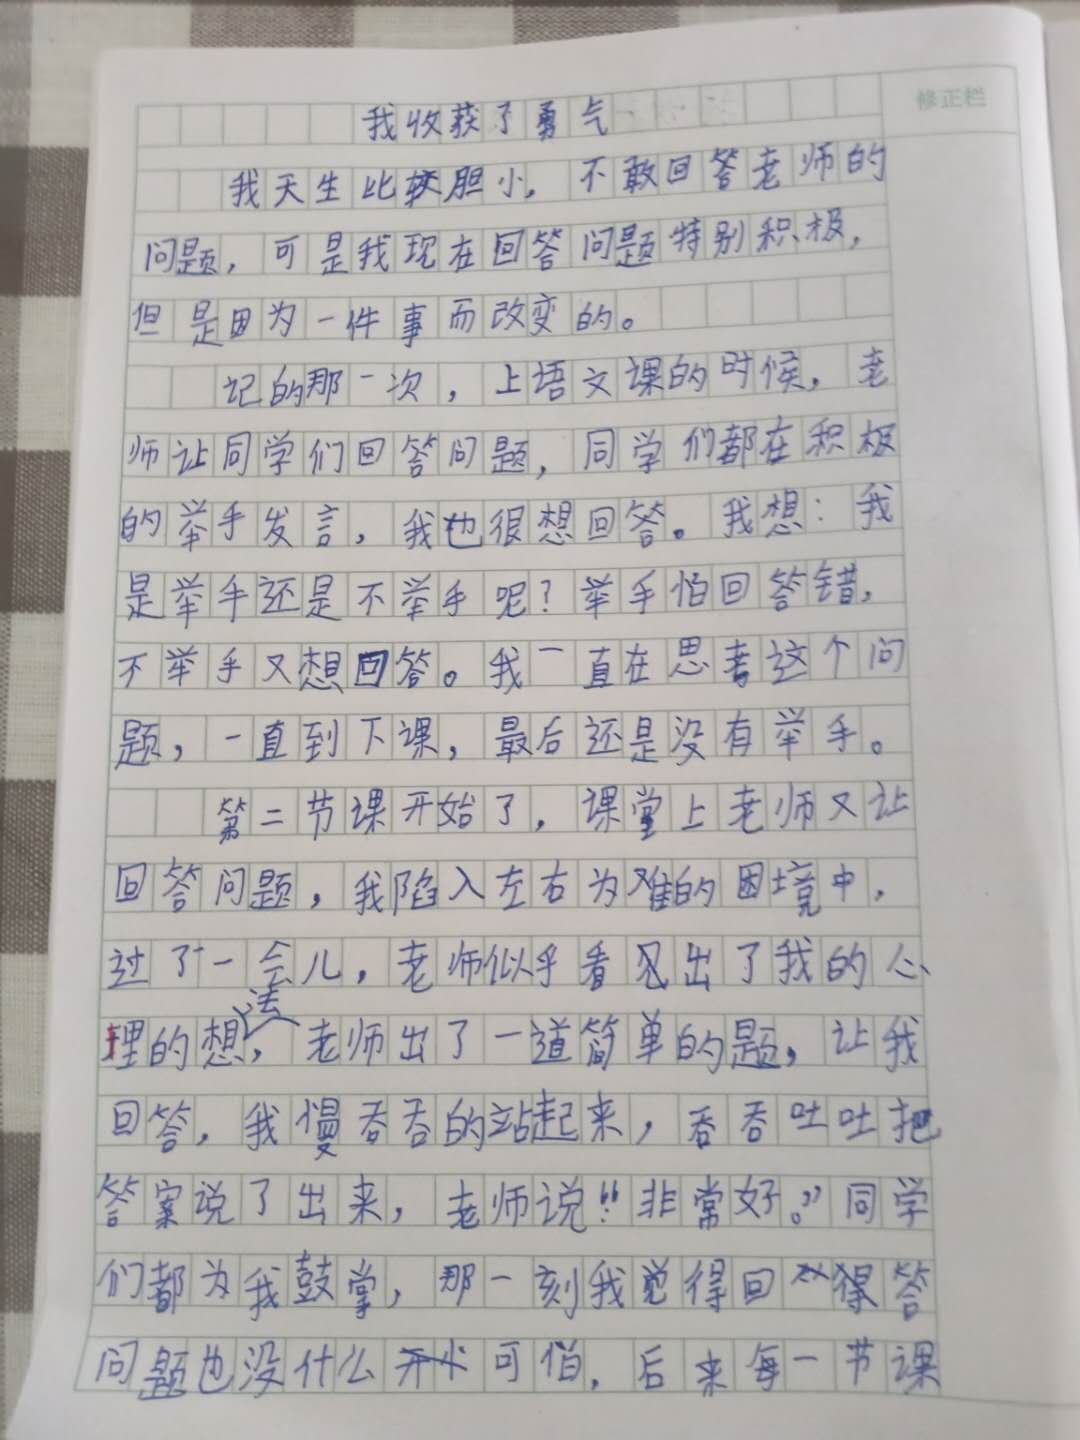 修正栏
我收获了勇气
我天生比较胆小，不敢回答老师的
问题，可是我现在回答问题特别积极，
但是因为一件事而改变的。
记的那一次，上语文课的时候，老
师让同学们回答问题，同学们都在积极
的举手发言，我也很想回答。我想：我
是举手还是不举手呢？举手怕回答错，
不举手又想回答。我一直在思考这个问
题，一直到下课，最后还是没有举手。
第二节课开始了，课堂上老师又让
回答问题，我陷入左右为难的困境中，
过了一会儿，老师似乎看出了我的心
理的想法，老师出了一道简单的题，让我
回答，我慢吞吞的站起来，吞吞吐吐把
答案说了出来，老师说："非常好。"同学
们都为我鼓掌，那一刻我觉得回答
问题也没什么可怕，后来每一节课